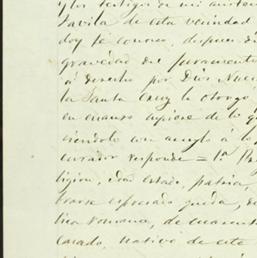 y los testigos de mi asisten
Davila de esta vecindad
doy fé conosco, despues de
gravedad del juramento
á derecho por Dios Nue
la Santa Cruz le otorgó
en cuanto supiere de lo q
ciendolo con arreglo á lo
curador responde = 1ª P
ligion, edad, estado, patria,
trase espresado queda, se
lica Romana, de cuarenta
casado, nativo de este